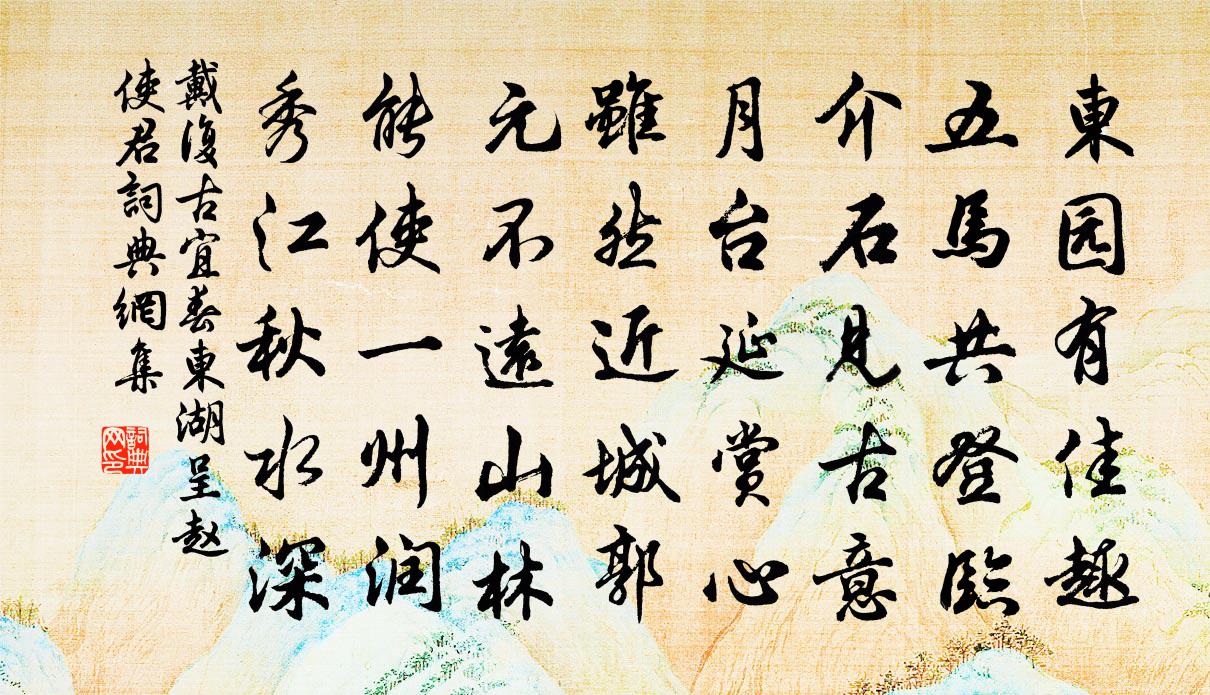 東园有佳趣
五馬共登臨
介石見古意
月台延赏心
雖然近城郭
元不遠山林
能使一州润
秀江秋水深
戴復古宜春東湖呈赵
使君詞典網集
詞典
网印